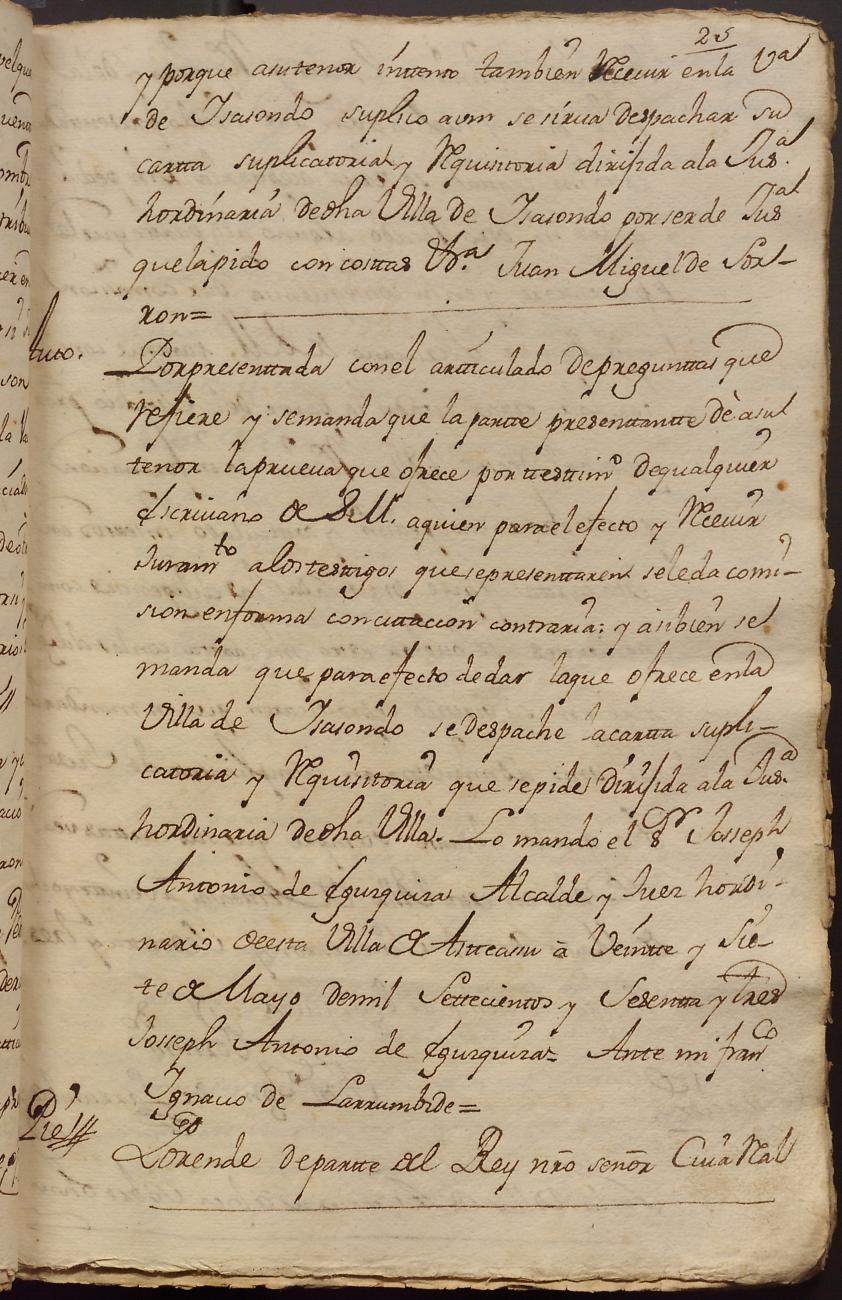 25
y porque asu tenor intento tambien Recevir en la Va
de Isasondo suplico a vm se sirva despachar su
cartta suplicatoria y Rquisitoria dirijida ala Jusa
hordinaria de dha Villa de Isasondo por ser de Jusa
que la pido con costtas &a Juan Miguel de Sor-
ron=
Por presenttada con el artticulado de pregunttas que
refiere y se manda que la partte presenttantte dè asu
tenor la prueva que ofrece por ttesttimo de qualquier
Escrivano de S.M. aquien para el efecto y Recevir
Juramto alos testtigos que se presenttaren se le da comi-
sion en forma con cittacion contraria: y asibien se
manda que para efecto de dar la que ofrece en la
Villa de Isasondo se despache la cartta supli-
catoria y Rquisitoria que se pide dirijida ala Jusa
hordinaria de dha Villa. Lo mando el Sr Joseph
Antonio de Egurquiza Alcalde y Juez hordi-
nario de esta Villa de Astteasu â Veintte y Sie-
te de Mayo de mil Settecientos y Sesentta y tres
Joseph Antonio de Egurquiza= Ante mi Franco
Ignacio de Larrumbide=
Pie//
Por ende de partte del Rey nro señor Cuia Ral